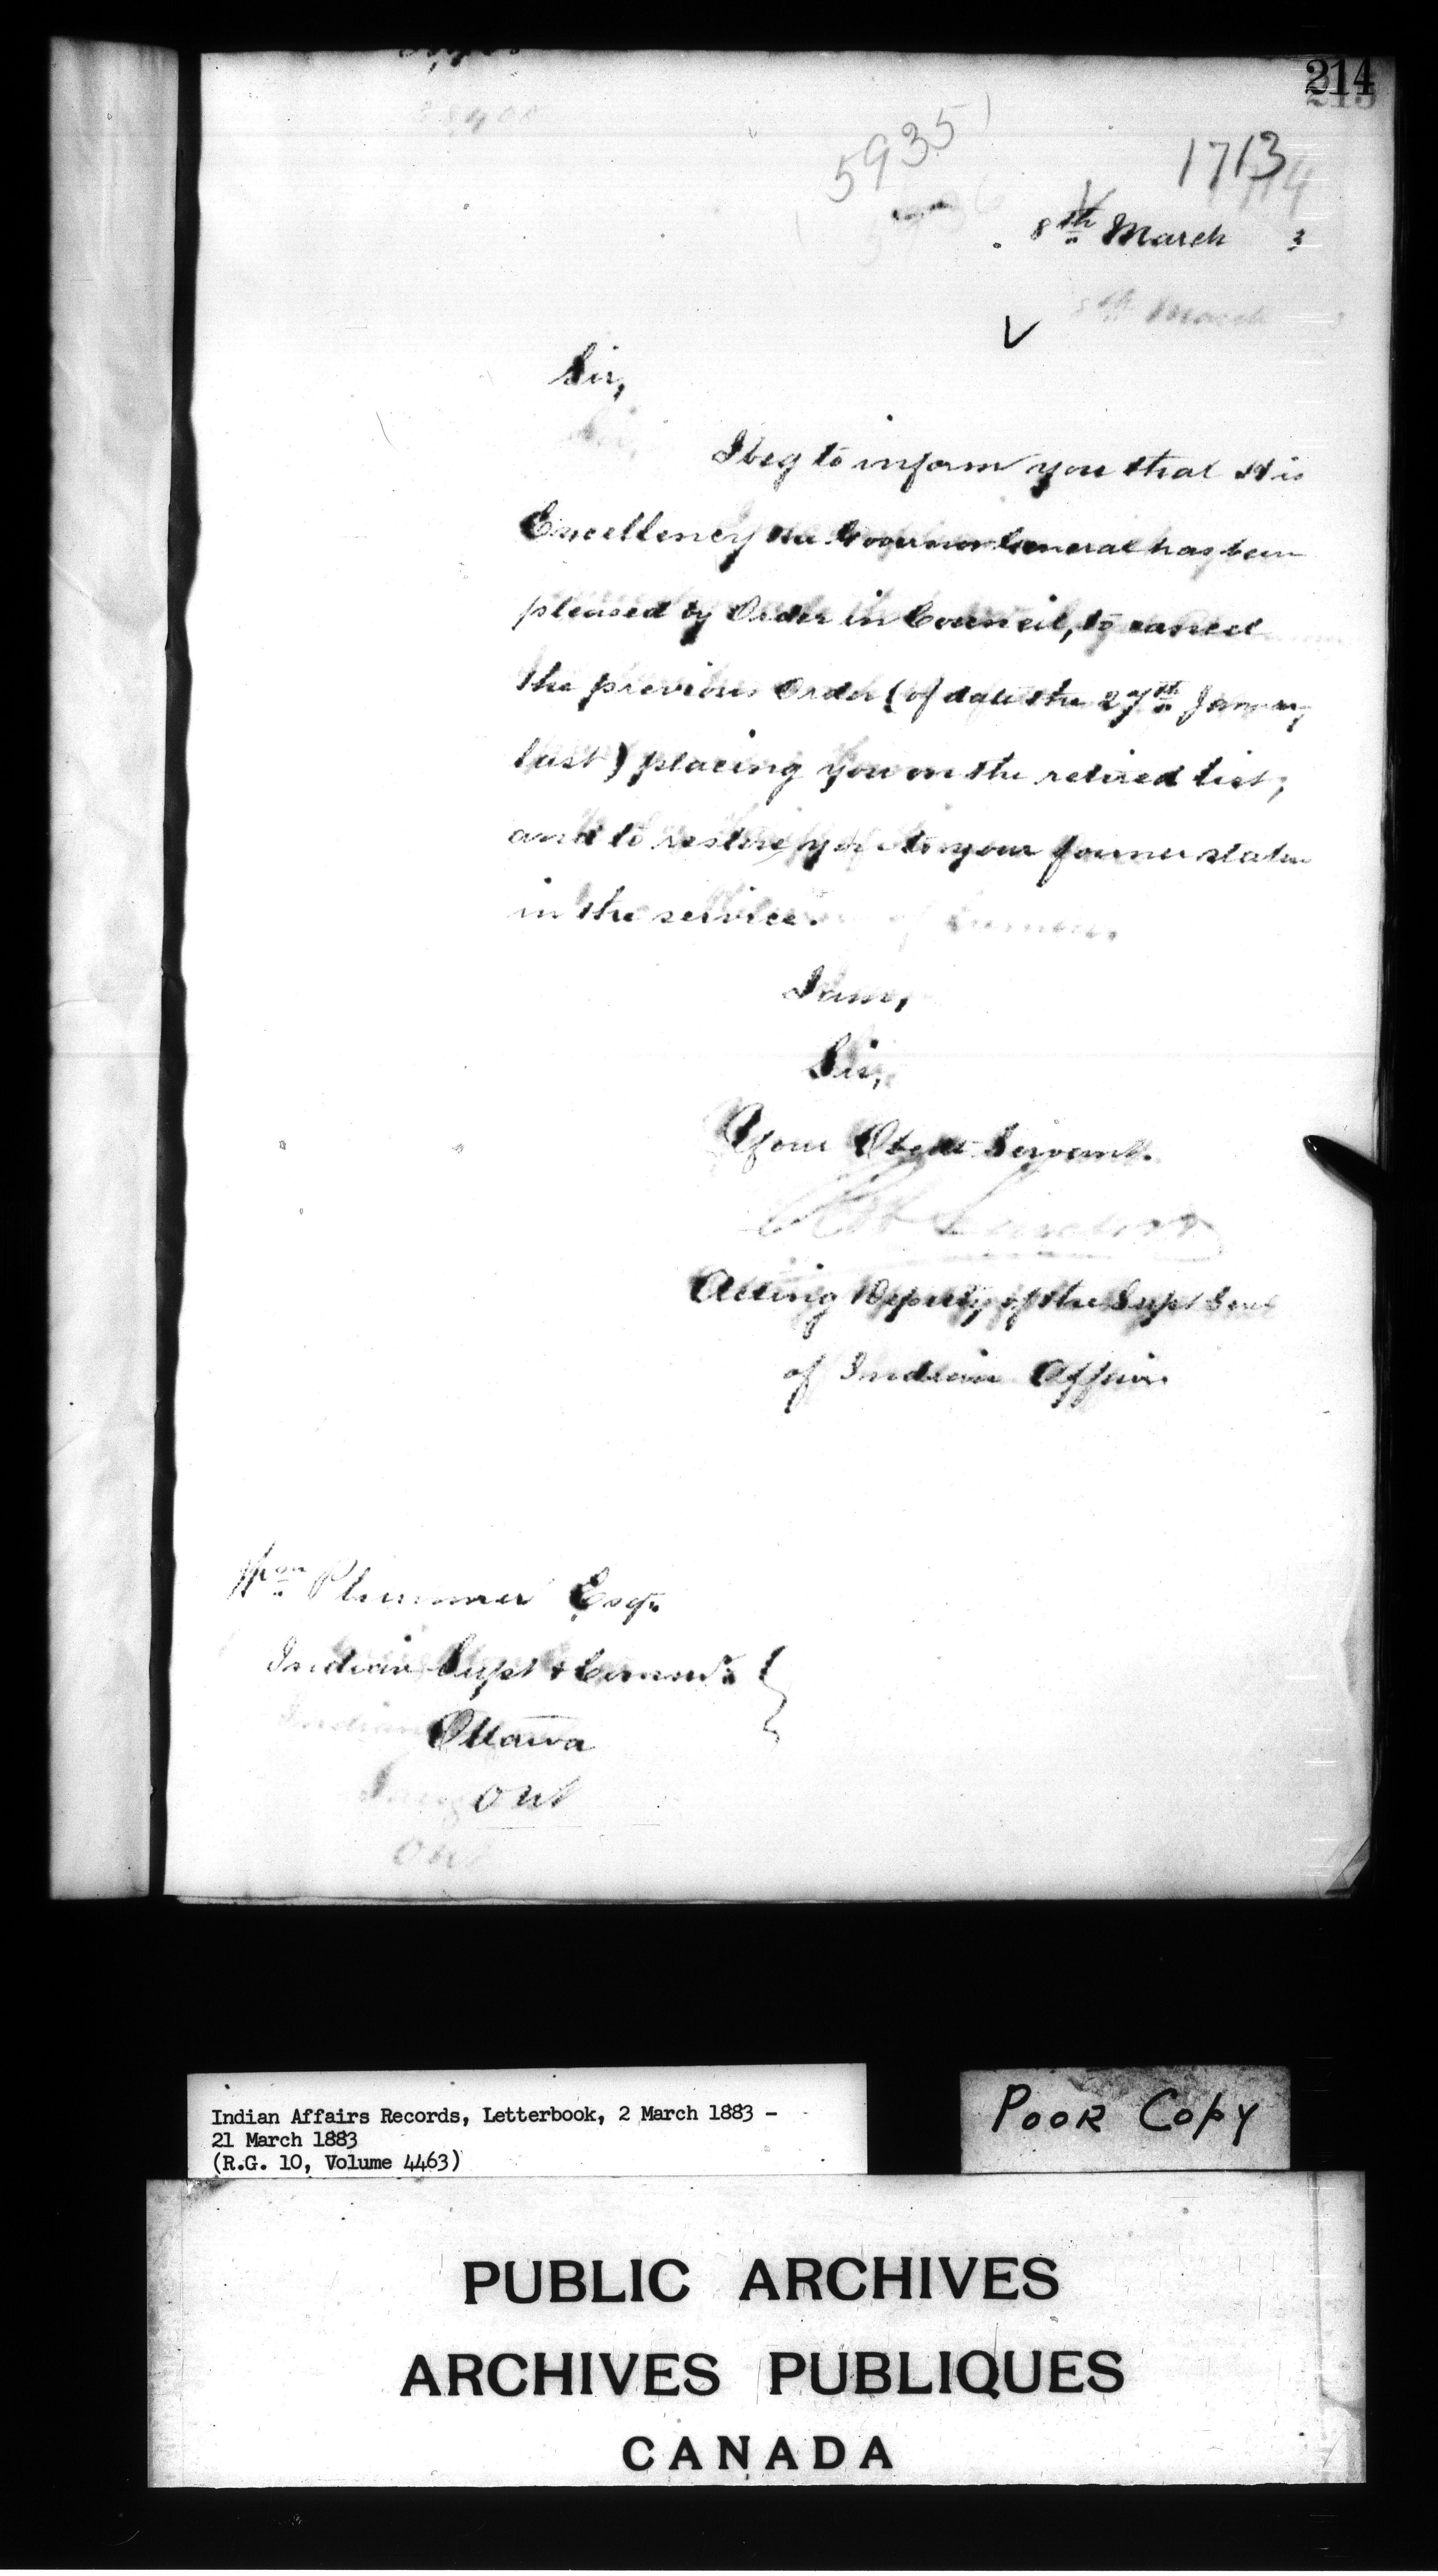 214
5935
1713
8th March 3
Sir,
I beg to inform you that His
Excellency the Governor General has been
pleased by Order in Council, to cancel
the previous Order (of date the 27th January
last) placing you on the retired list,
and to restore you to your former status
in the service.
I am,
Sir,
Your Obedt Servant.
Acting Deputy of the Supt Genl
of Indian Affairs
Wm Plummer Esqr.
Indian Supt & Commr.
Ottawa
Ont
Indian Affairs Records, Letterbook, 2 March 1883 -
21 March 1883
(R.G. 10, Volume 4463)
POOR COPY
PUBLIC ARCHIVES
ARCHIVES PUBLIQUES
CANADA